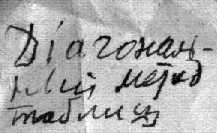 Діагональ-
ний метод
таблиці